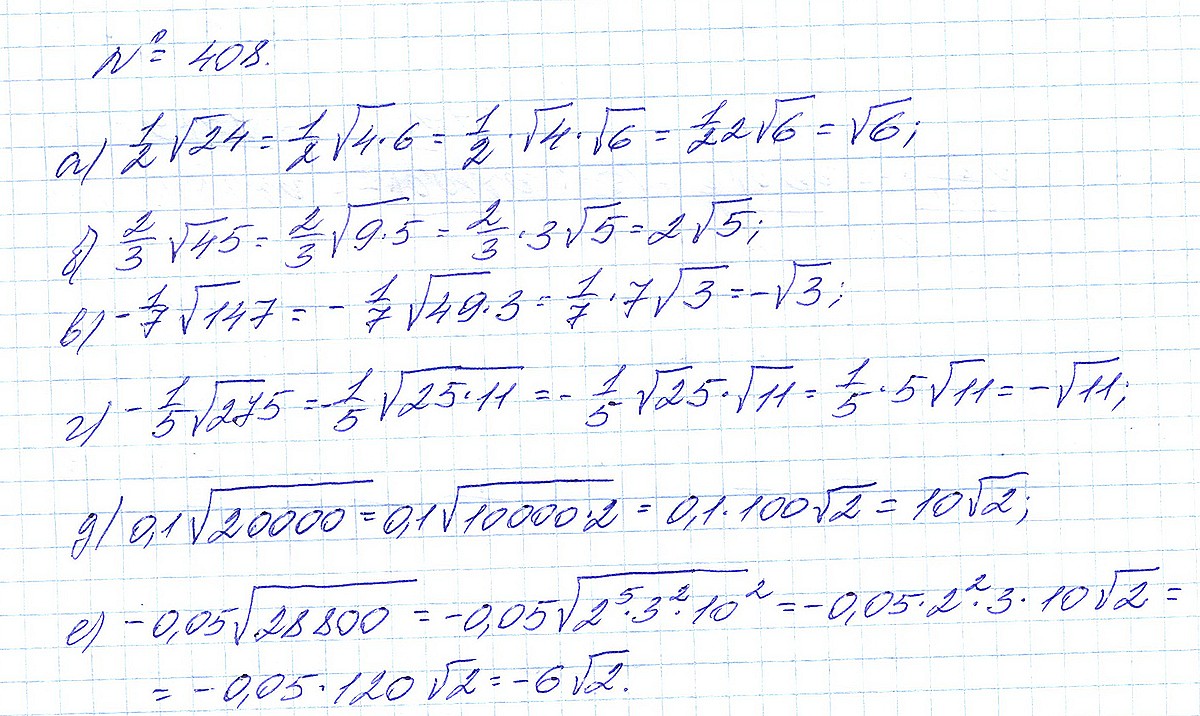 № 408.
а) 1/2 √24 = 1/2 √4·6 = 1/2 · √4 · √6 = 1/2 2√6 = √6;
б) 2/3 √45 = 2/3 √9·5 = 2/3 · 3√5 = 2√5;
в) -1/7 √147 = -1/7 √49·3 = 1/7 · 7√3 = -√3;
г) -1/5 √275 = -1/5 √25·11 = -1/5 √25 · √11 = 1/5 · 5√11 = -√11;
д) 0,1√20000 = 0,1√10000·2 = 0,1·100√2 = 10√2;
е) -0,05√28800 = -0,05√2⁵·3²·10² = -0,05·2²·3·10√2 =
= -0,05·120√2 = -6√2.